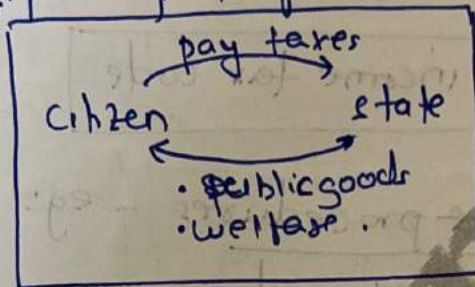 pay taxes
citizen state
• public goods
• welfare .